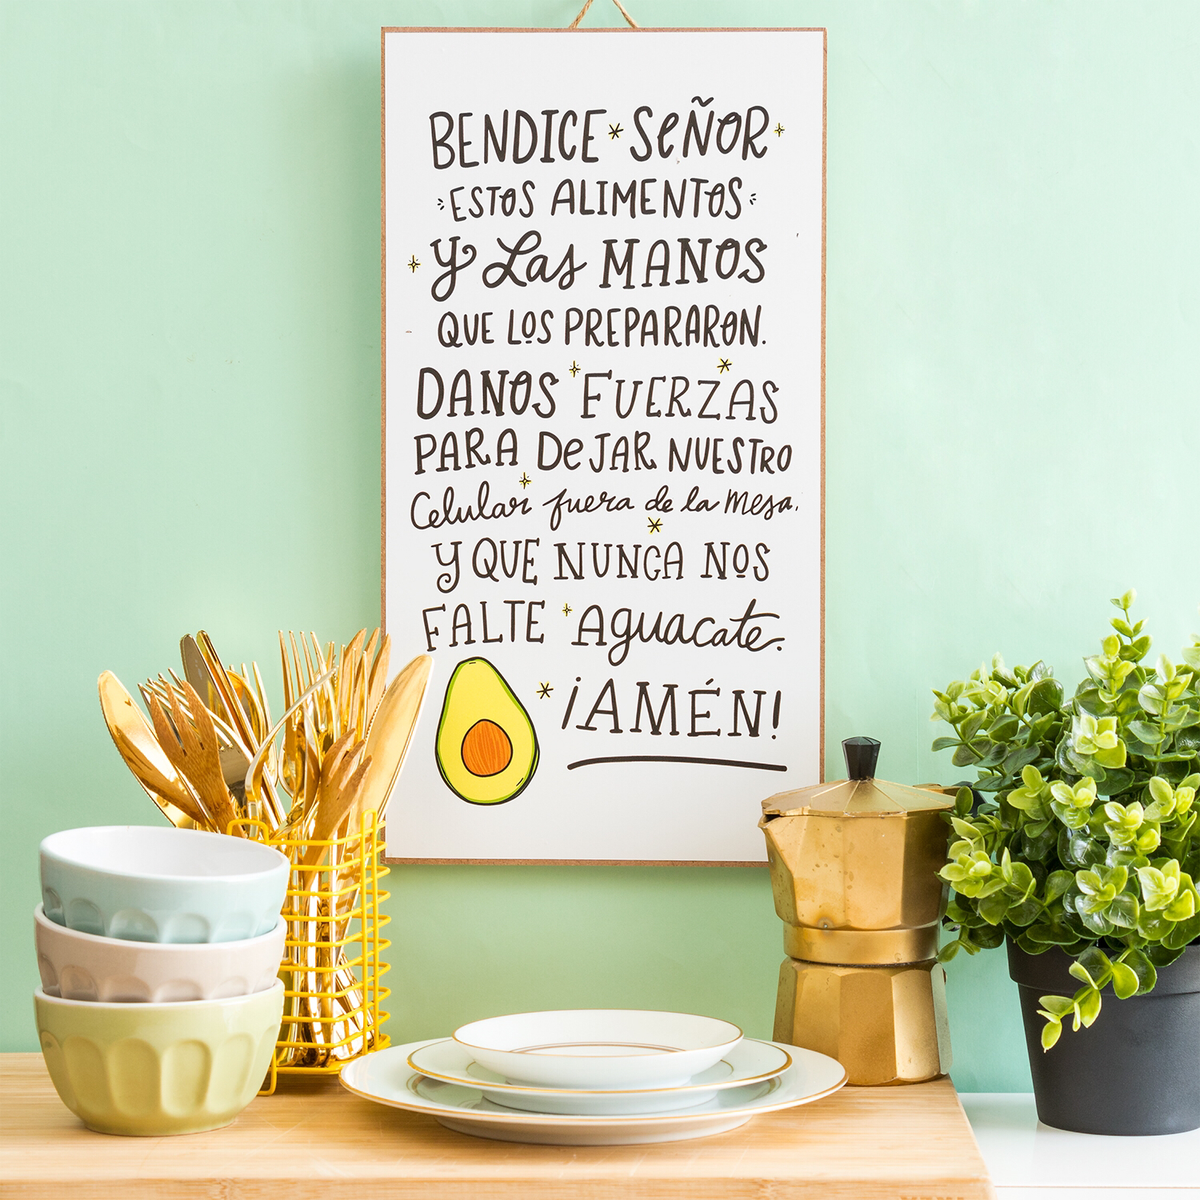 BENDICE SEÑOR
ESTOS ALIMENTOS
Y Las MANOS
QUE LOS PREPARARON.
DANOS FUERZAS
PARA DeJAR NUESTRO
Celular fuera de la mesa.
Y QUE NUNCA NOS
FALTE Aguacate.
¡AMÉN!